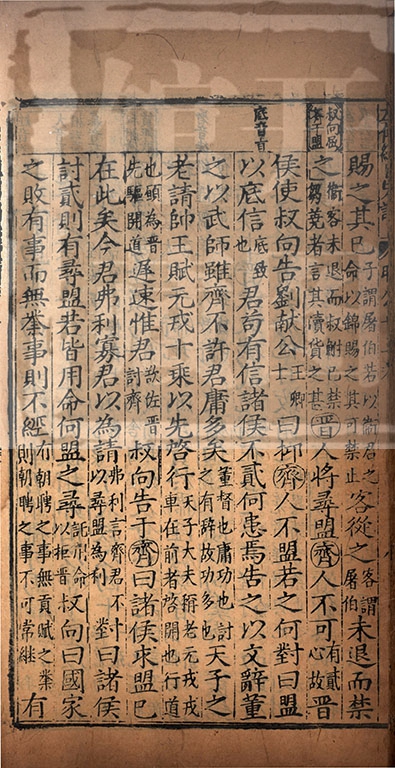 叔向屈
齊于盟
底音旨
賜之其已子謂屠伯若以衞君之命以錦賜之其可禁止客從之客謂屠伯未退而禁
之衞客未退而叔鮒已禁芻蕘者言其瀆貨之甚晉人將尋盟齊人不可有貳心故晉
侯使叔向告劉獻公王卿士曰抑齊人不盟若之何對曰盟
以底信底致也君苟有信諸侯不貳何患焉告之以文辭董
之以武師雖齊不許君庸多矣董督也庸功也討之有辭故功多也天子之
老請帥王賦元戎十乘以先啓行天子大夫稱老元戎戎車在前者啓開也行道
也願為晉先驅開道遲速惟君欲佐晉討齊叔向告于齊曰諸侯求盟已
在此矣今君弗利寡君以為請弗利言齊君不以尋盟為利對曰諸侯
討貳則有尋盟若皆用命何盟之尋託用命以拒晉叔向曰國家
之敗有事而無業事則不經有朝聘之事無貢賦之業則朝聘之事不可常継有